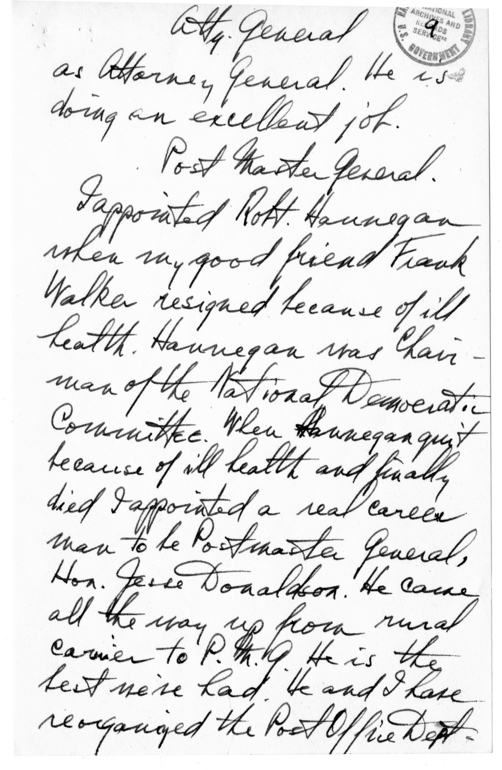 Atty. General
9
NATIONAL
ARCHIVES AND
RECORDS
SERVICE
LIBRARY
U.S. GOVERNMENT
as Attorney General. He is
doing an excellent job.
Post Master General.
I appointed Robt. Hannegan
when my good friend Frank
Walker resigned because of ill
health. Hannegan was Chair-
man of the National Democratic
Committee. When Hannegan quit
because of ill health and finally
died I appointed a real career
man to be Postmaster General,
Hon. Jesse Donaldson. He came
all the way up from rural
carrier to P.M.G. He is the
best we've had. He and I have
reorganized the Post Office Dept-